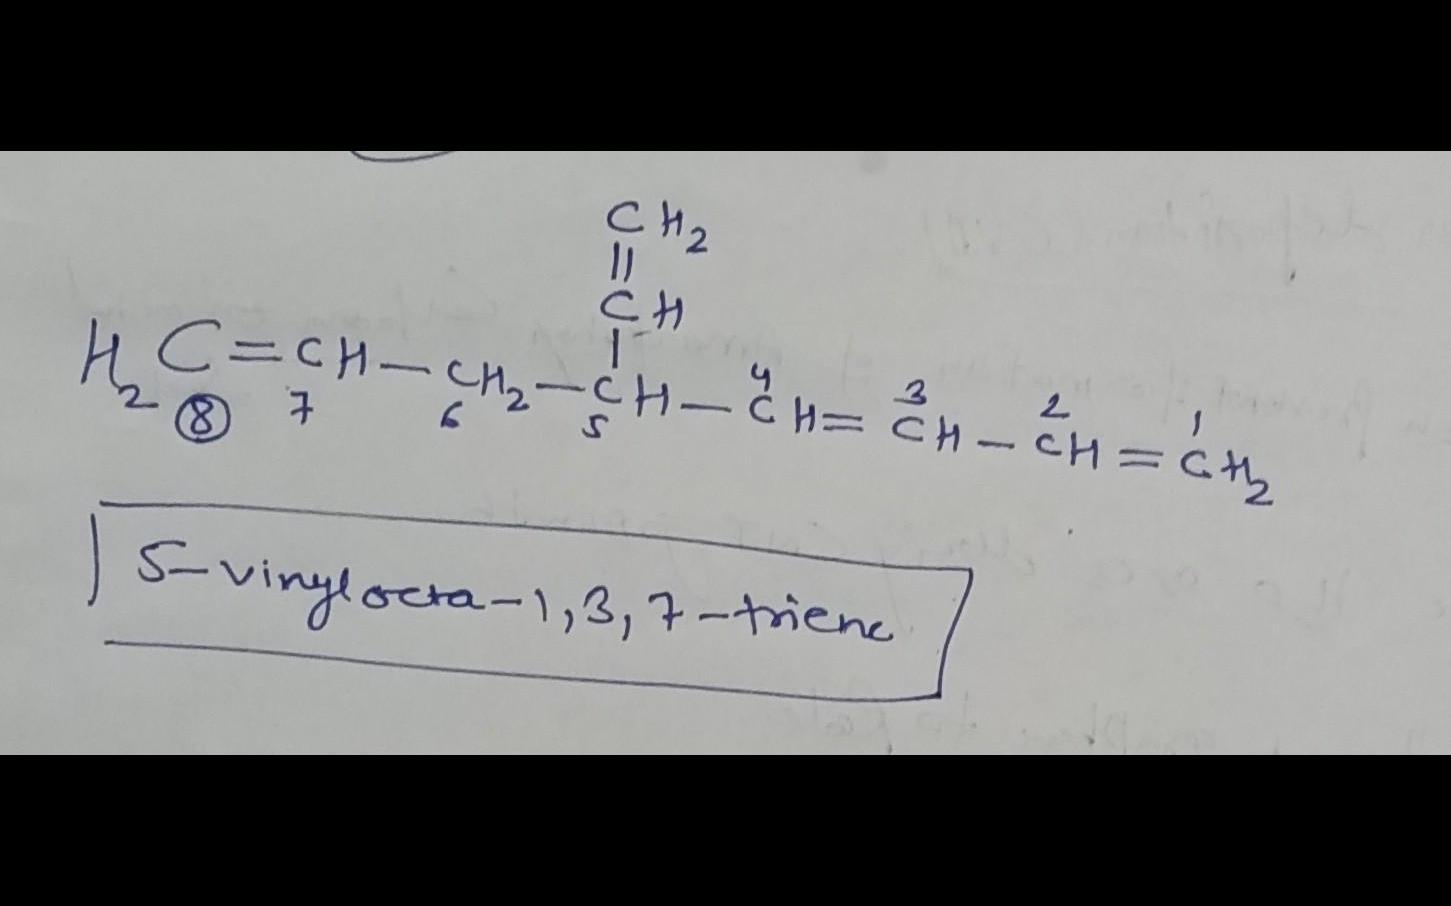 CH2
||
CH
|
H2C=CH-CH2-CH-CH=CH-CH=CH2
8 7 6 5 4 3 2 1
5-vinylocta-1,3,7-triene